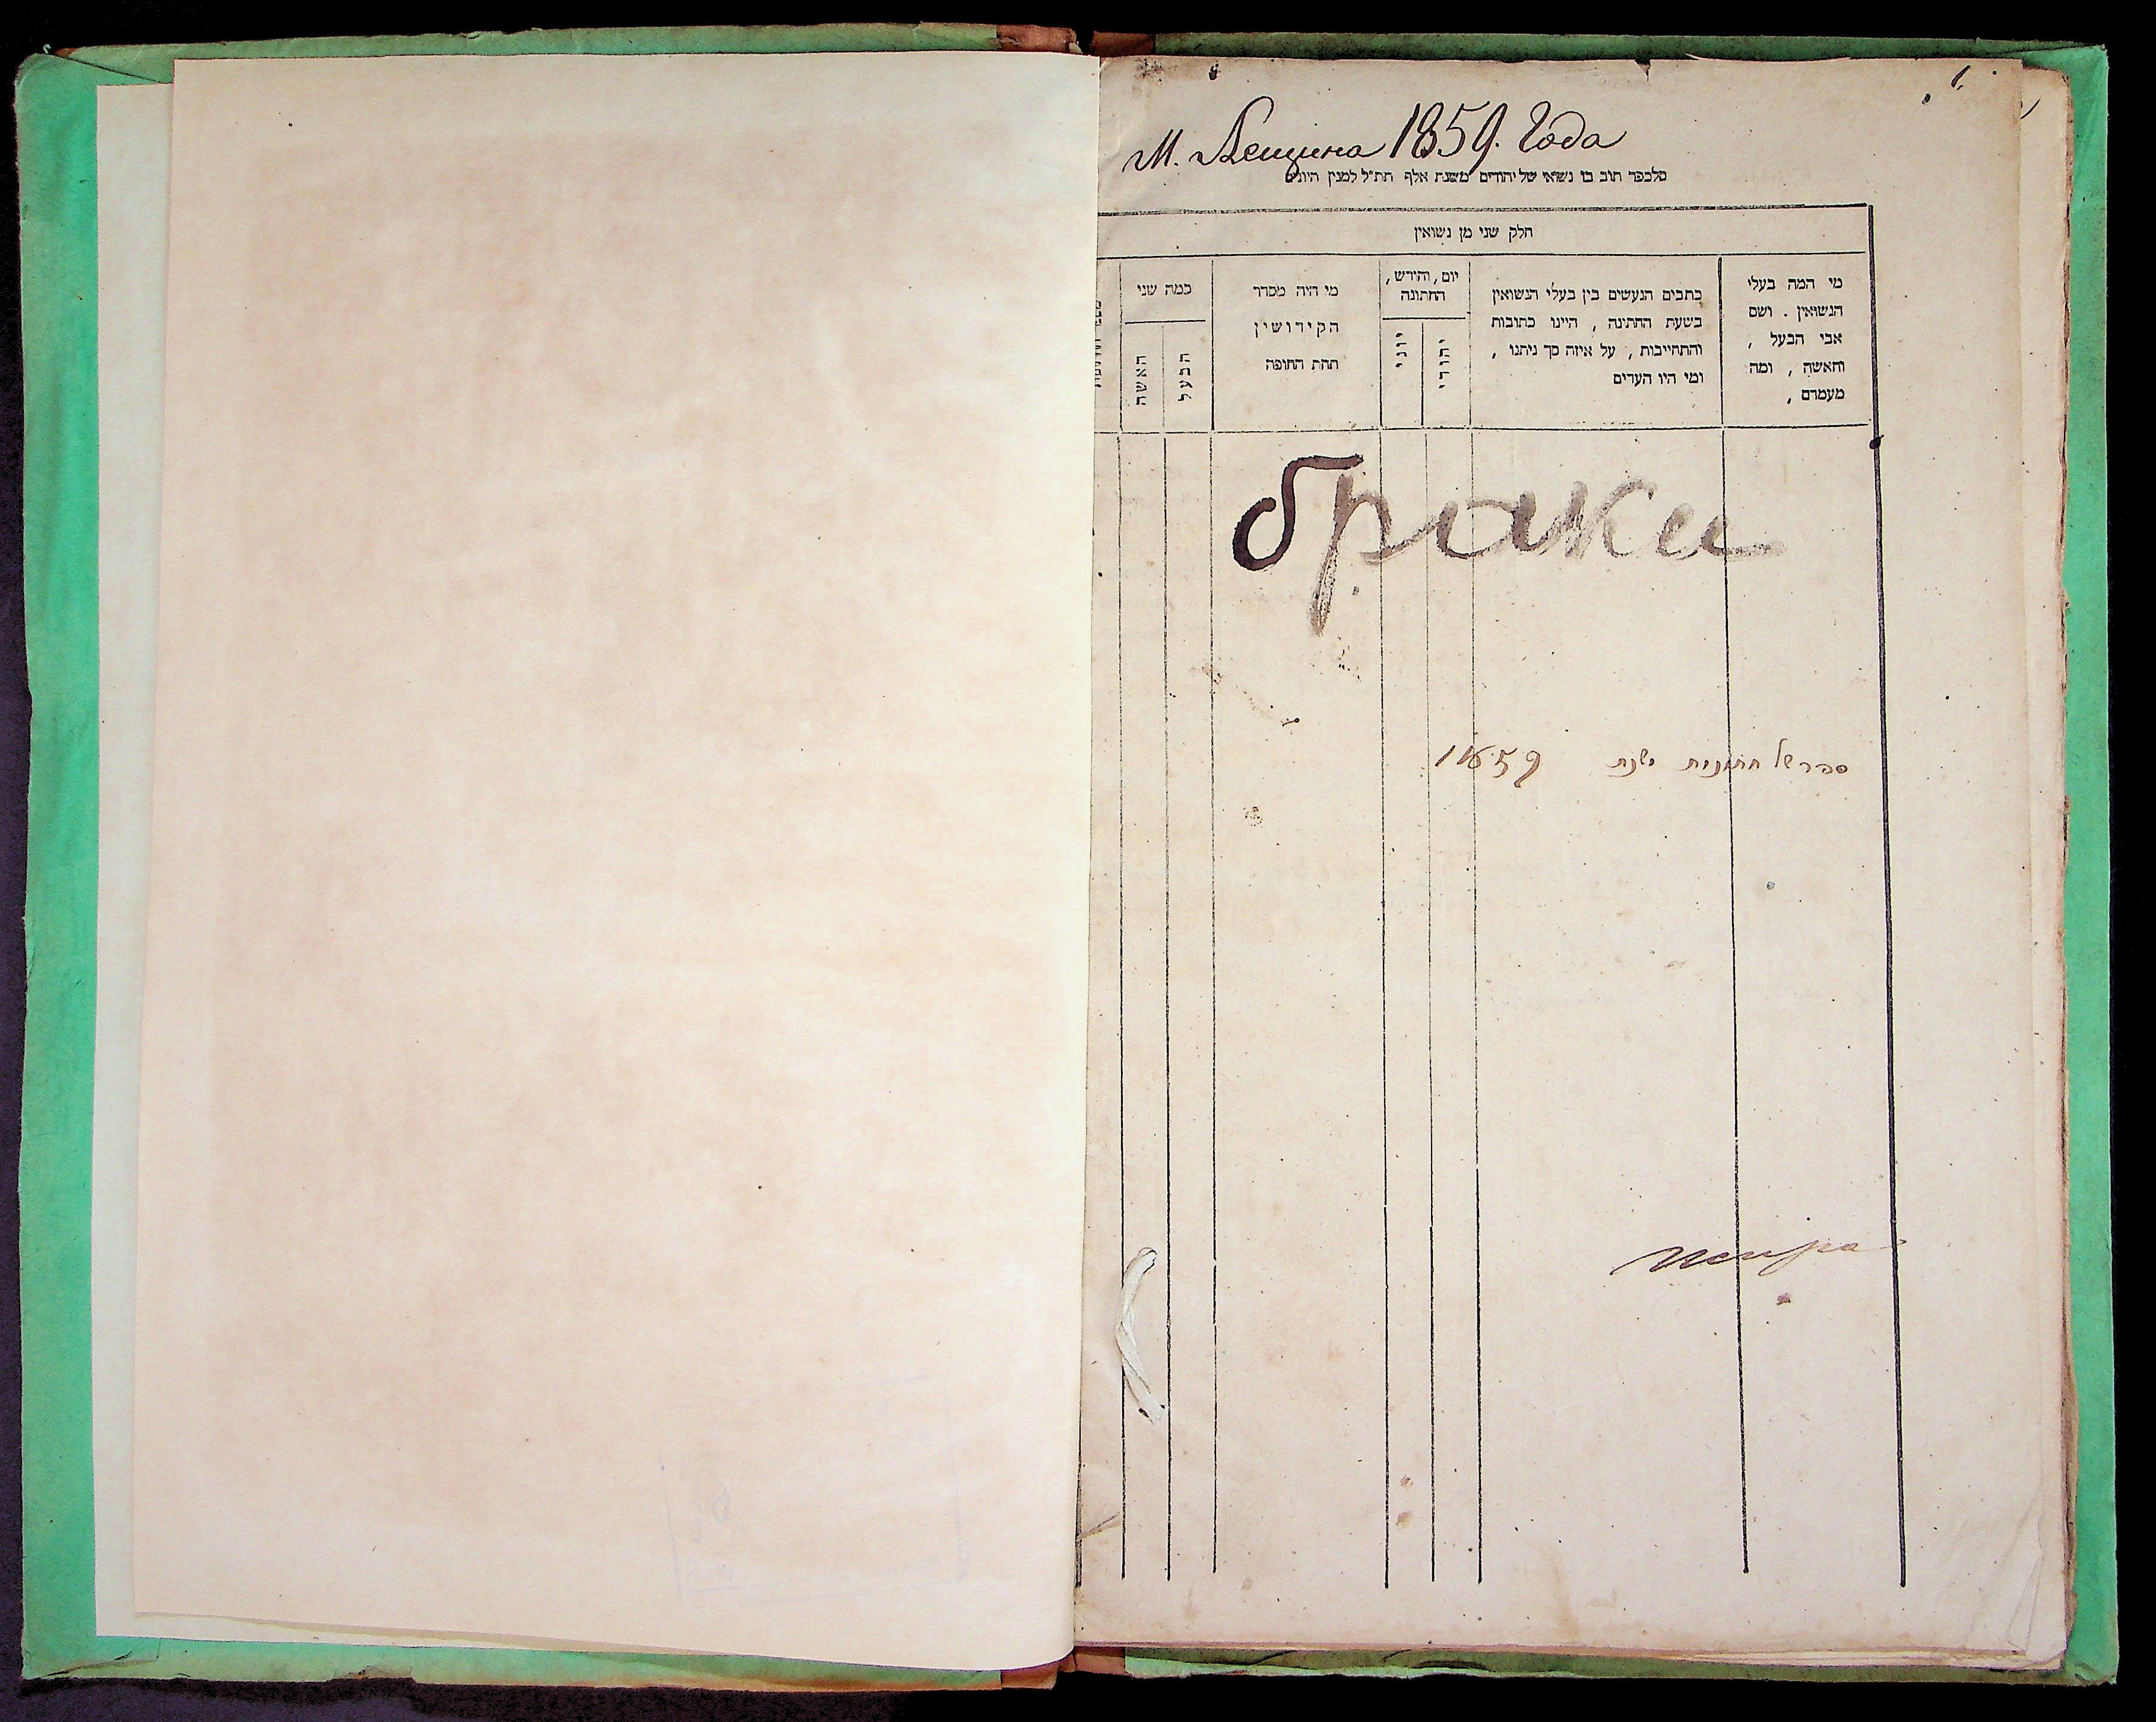 1.
М. Лещина 1859. Года
מלכפר תוב בו נשואי של יהודים משנת אלף תת״ל למנין היוני
חלק שני מן נשואין
מי המה בעלי
הנשואין . ושם
אבי הבעל ,
והאשה , ומה
מעמדם ,
כתבים הנעשים בין בעלי הנשואין
בשעת החתונה , היינו כתובות
והתחייבות , על איזה סך ניתנו ,
ומי היו העדים
יום , וחידש ,
החתונה
יהודי
יוני
מי היה מסדר
הקידושין
תחת החופה
כמה שני
הבעל
האשה
браки
ספר של חתונות שנת 1859